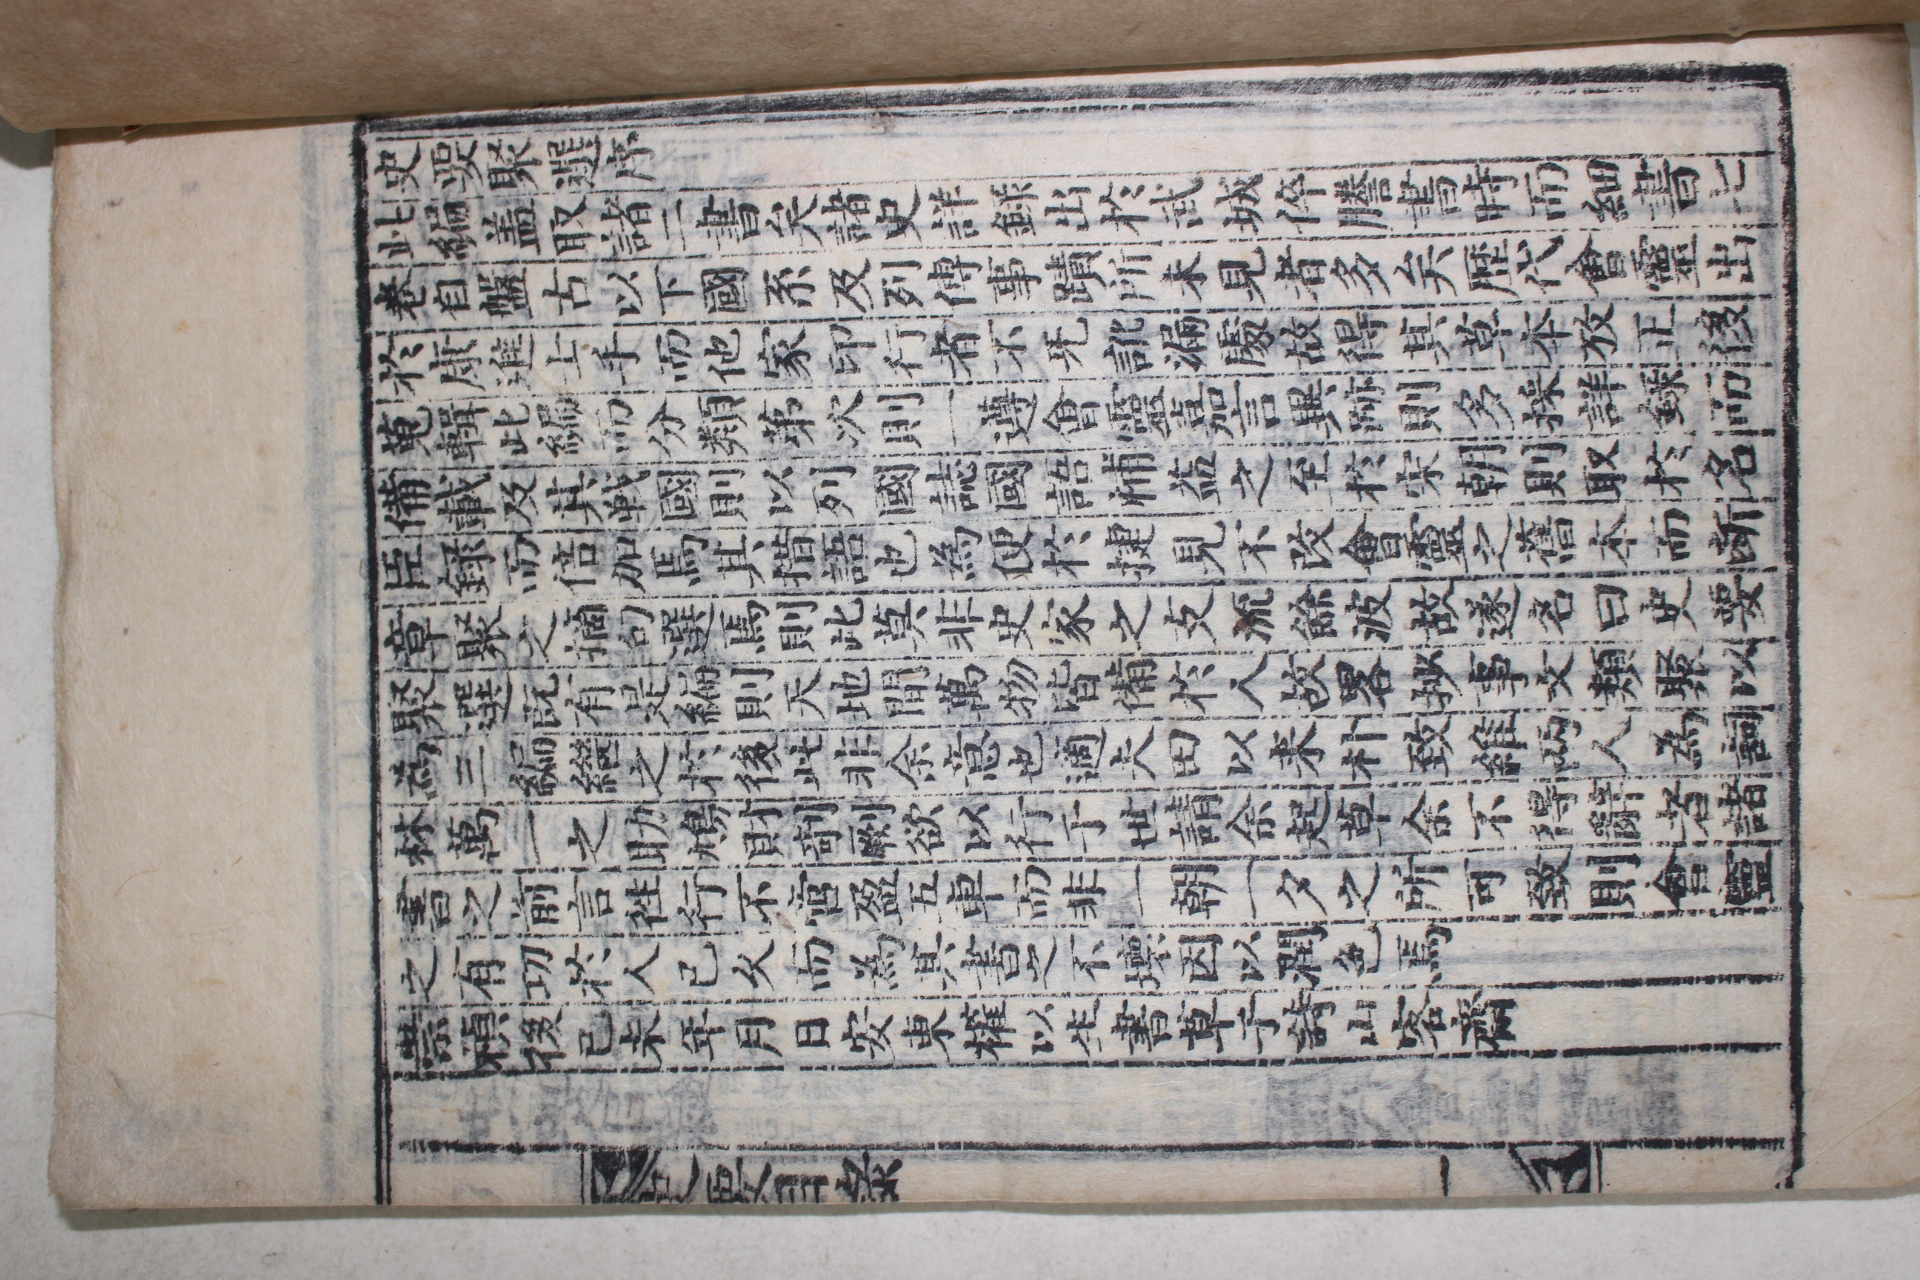 史要聚選序
此編盖取諸二書矣諸史詳錄出於武城倅謄書時而細書七
卷自盤古以下國系及列傳事蹟所未見者多矣歷代會靈出
於康進士手而他家印行者不旡訛漏處故得其草本攷正後
蒐輯此編而分類苐次則一遵會靈嘉言異跡則多採詳錄而
備載及其戰國則以列國誌國語補益之至於宋朝則取於名
臣錄而倍加焉其措語也為便於捷見不改會靈之舊本而斷
章聚之摘句選焉則此莫非史家之支流餘波故遂名曰史要
聚選既有是編則天地間萬物皆備於人故畧抄事文類聚以
為三編繼之於後此非余意也適夫田以来朴致維兩人為詞
林萬一之助鳩財剞劂欲以行于世請余起草余不得辭者諸
書之前言徃行不啻盈五車而非一朝一夕之所可致則會靈
之有功於人已久而為其書之不壞因以潤色焉
崇禎後已未年月日安東權以生書草于詩山客齋
史要目錄
一